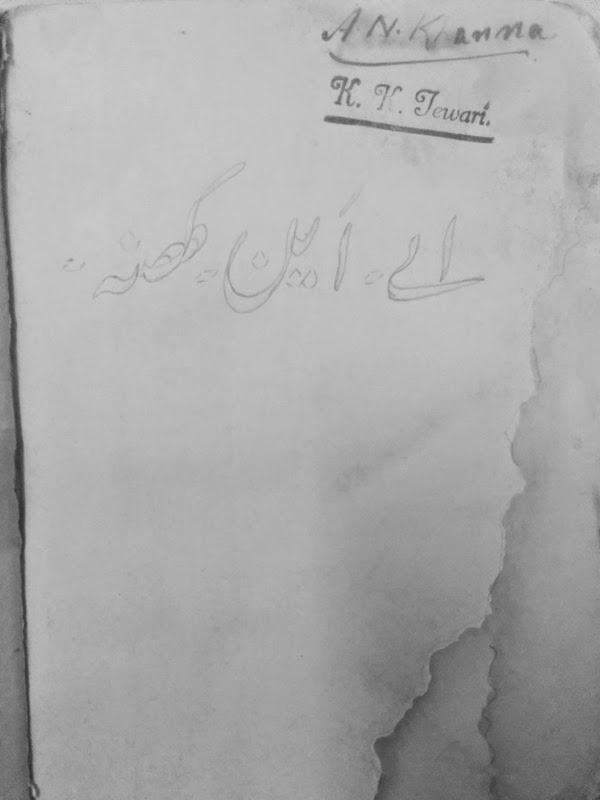 A N. Khanna
K. K. Tewari.
اے۔ اَین۔ کھنہ۔